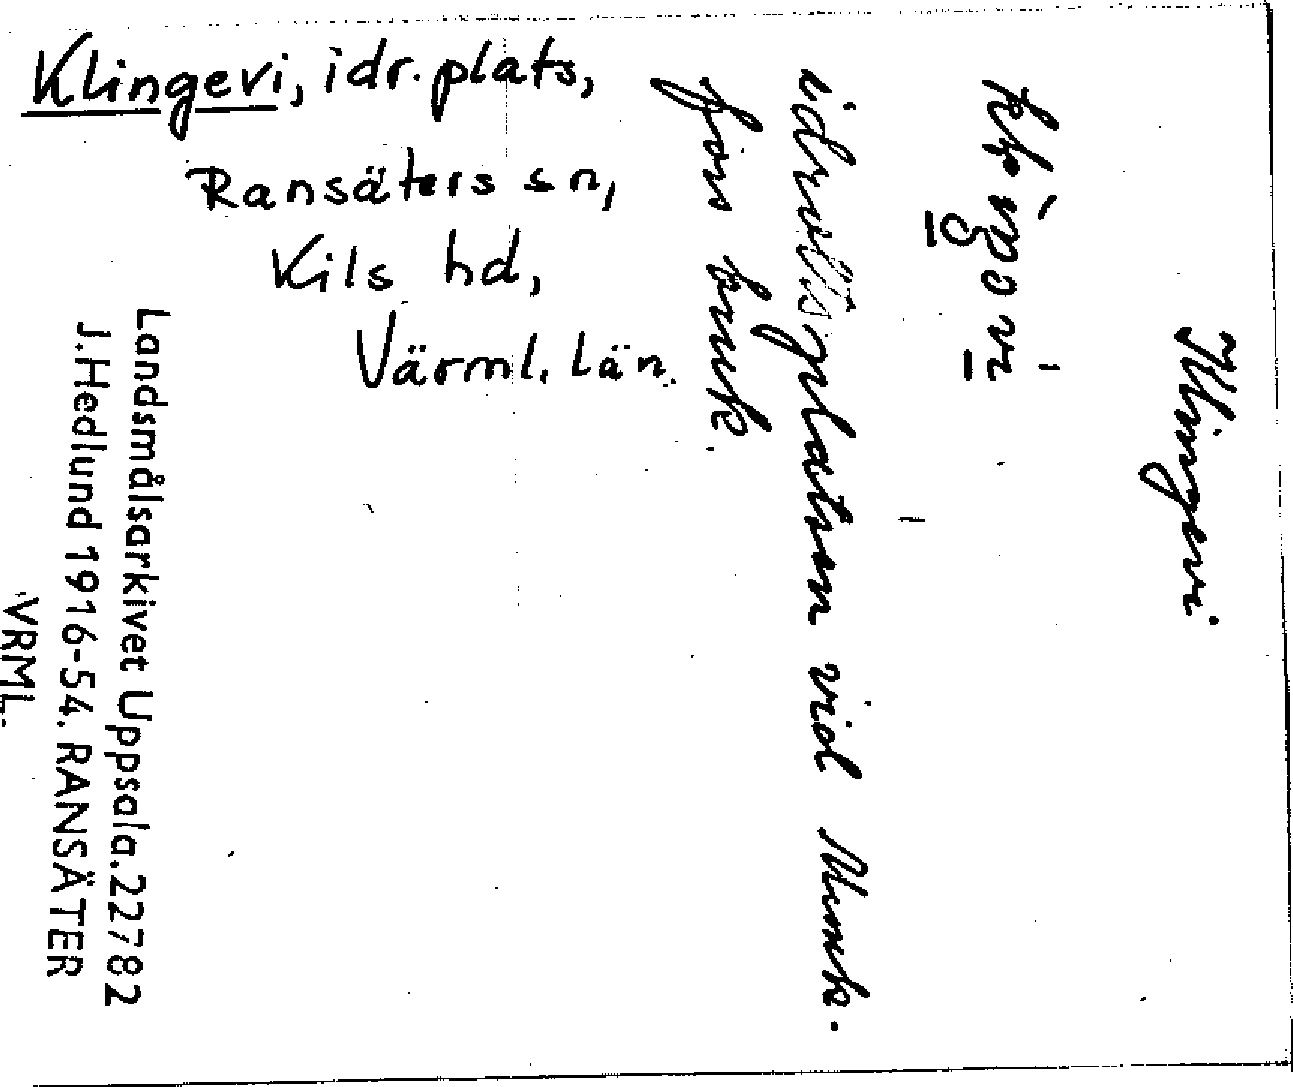 Klingevi, idr. plats,
Ransäters sn,
Kils hd,
Värml. län.
Klingevi
idrottsplatsen vid Munk-
fors bruk.
Landsmålsarkivet Uppsala. 22782
J. Hedlund 1916-54. RANSÄTER
VRML.